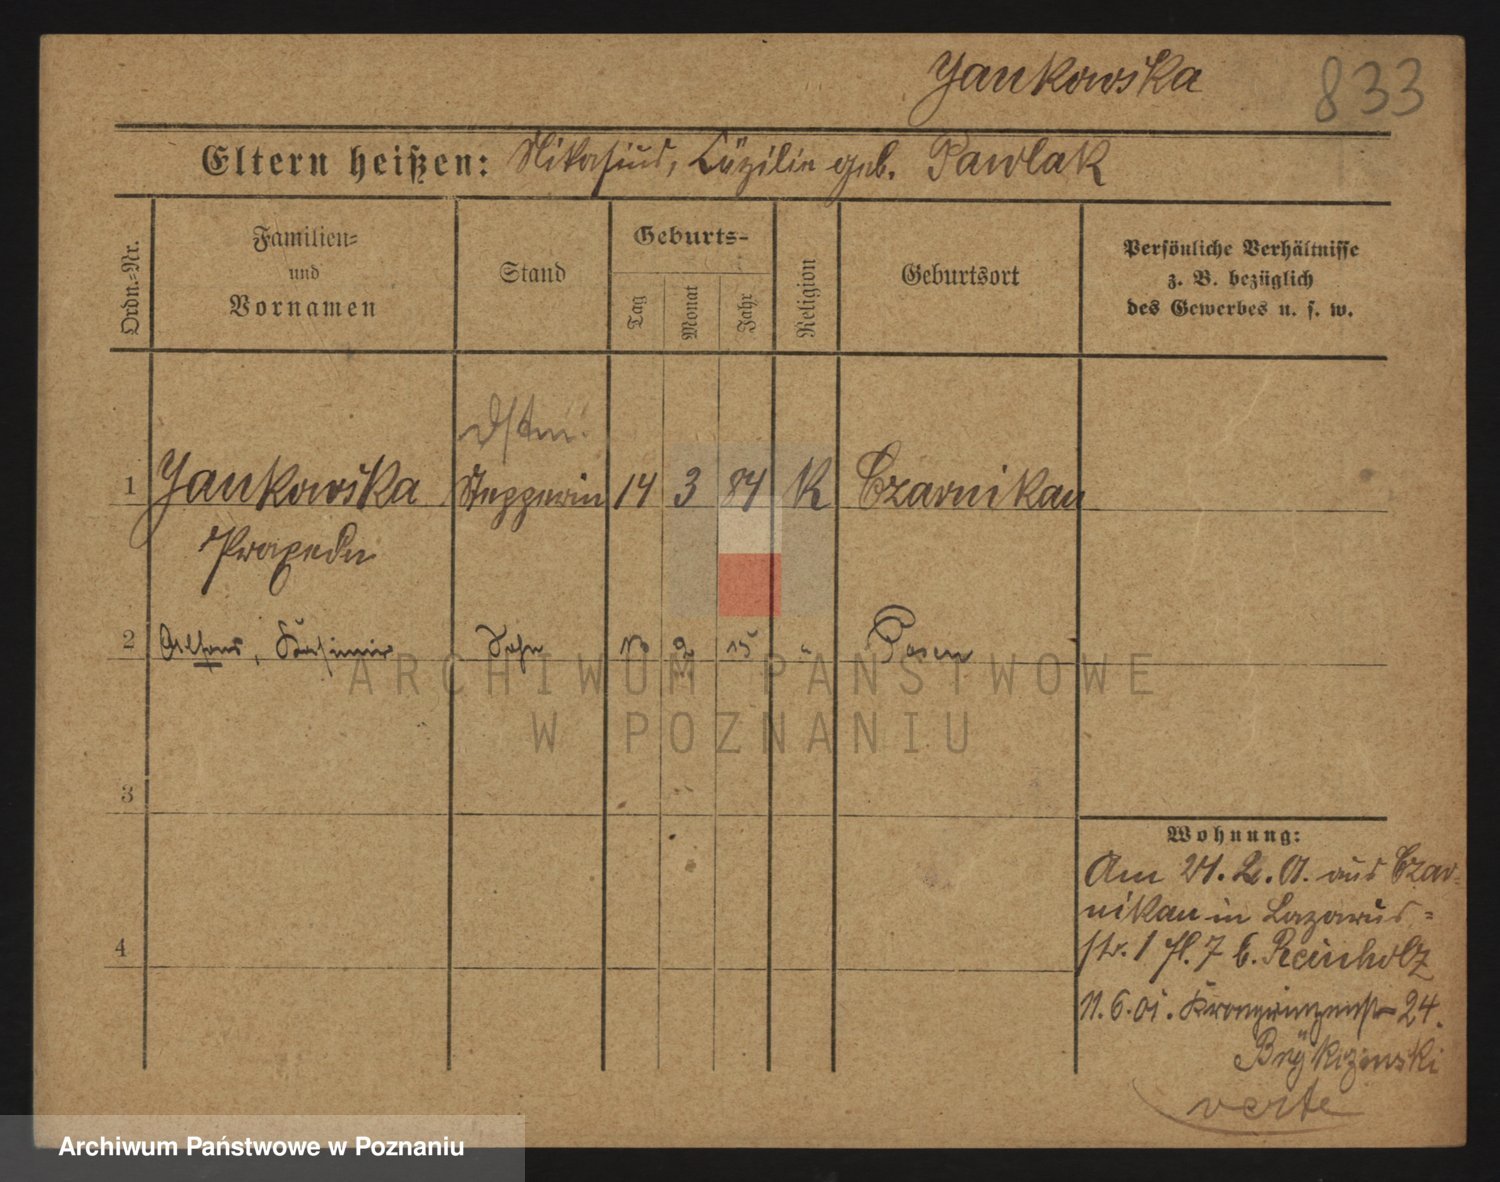 Jankowska 833
Eltern heißen: Nikasius, Cäzilie geb. Pawlak
Ordn.-Nr.
Familien-
und
Vornamen
Stand
Geburts-
Tag
Monat
Jahr
Religion
Geburtsort
Persönliche Verhältnisse
z. B. bezüglich
des Gewerbes u. s. w.
1 Jankowska Stepperin 14 3 84 K Czarnikau
Praxeda
2 Kasimir Sohn 2 15 " Posen
3
4
Wohnung:
Am 21. 2. 01. aus Czar-
nikau in Lazarus-
str. 1 fl. 7 b. Reinholz
11. 6. 01. Kronprinzenstr 24.
verte
ARCHIWUM PAŃSTWOWE
W POZNANIU
Archiwum Państwowe w Poznaniu